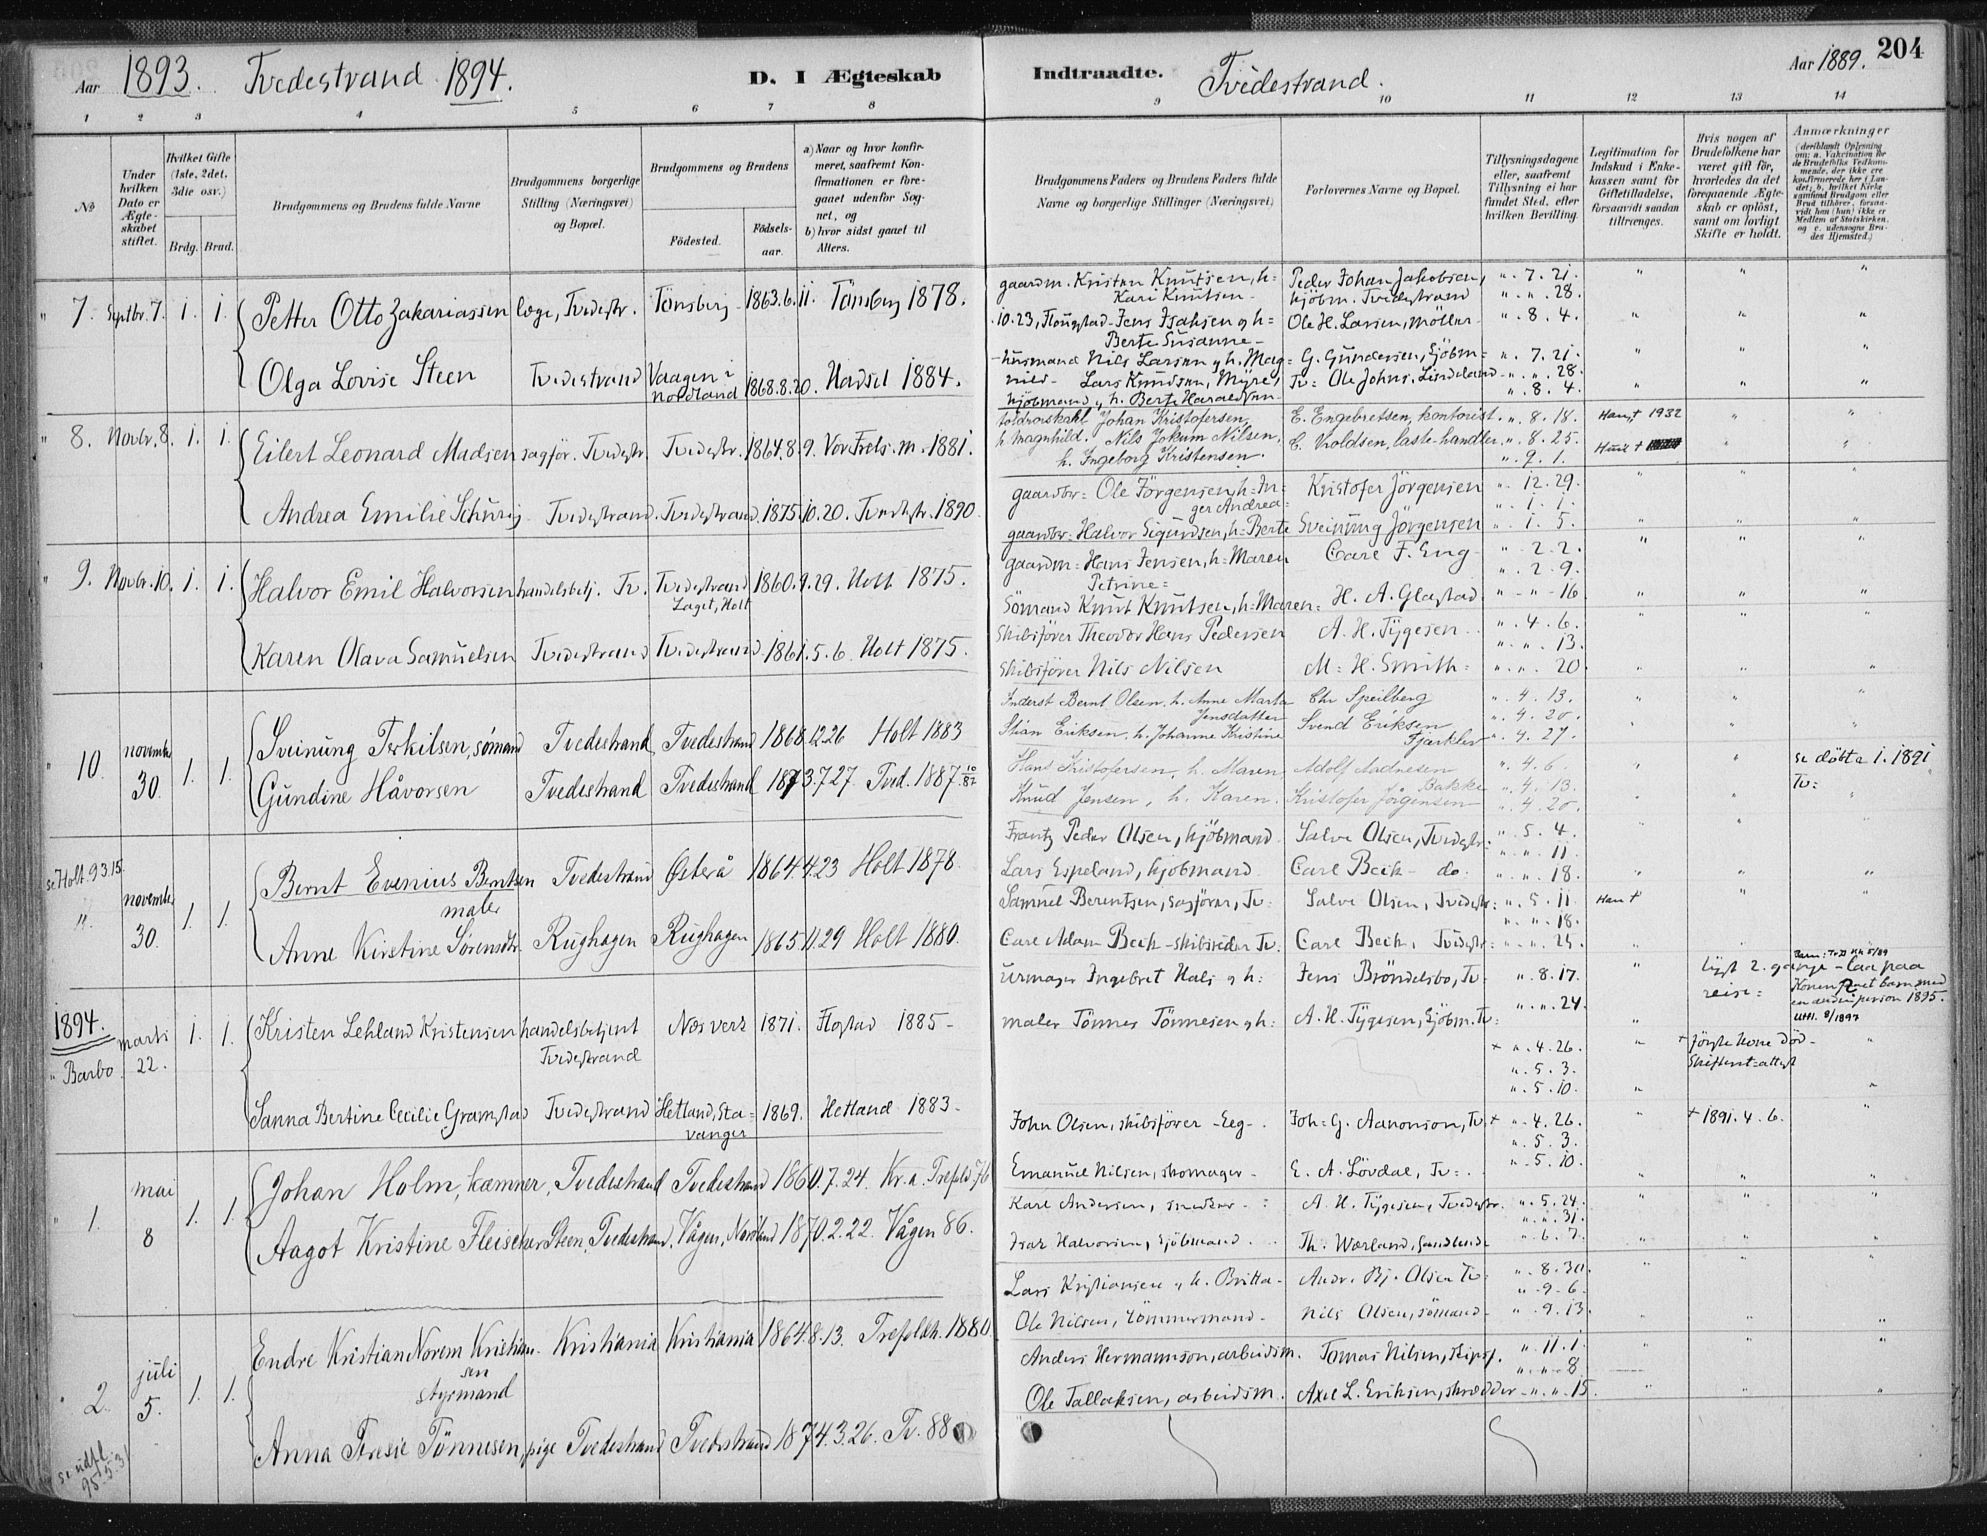 Aar 1893. Tvedestrand 1894. D. I Ægteskab
1 2 3 4 5 6 7 8
No
Under hvilken Dato er Ægteskabet stiftet.
Hvilket Gifte (1ste, 2det, 3die osv.)
Brdg. Brud.
Brudgommens og Brudens fulde Navne
Brudgommens borgerlige Stilling (Næringsvei) og Bopæl.
Brudgommens og Brudens
Födested.
Födsels-aar.
a) Naar og hvor konfirmeret, saafremt Konfirmationen er foregaaet udenfor Sognet, og
b) hvor sidst gaaet til Alters.
" 7. Septbr. 7. 1. 1. Petter Otto Zakariassen læge, Tvedestr. Tönsberg 1863.6.11. Tönsberg 1878.
Olga Lovise Steen Tvedestrand Vaagen i Nordland 1868.8.20. Hadsel 1884.
" 8. Novbr. 8. 1. 1. Eilert Leonard Madsen sagför. Tvedestr. Tvedestr. 1864.8.9. Vor Frels. m. 1881.
Andrea Emilie Schürig Tvedestrand. Tvedestrand. 1875.10.20. Tvedestr. 1890.
" 9. Novbr. 10. 1. 1. Halvor Emil Halvorsen handelsbetj. Tv. Tvedestrand Laget, Holt 1860.9.29. Holt 1875.
Karen Olava Samuelsen Tvedestrand Tvedestrand. 1861.5.6. Holt 1875.
" 10. november 30. 1. 1. Sveinung Terkilsen, sömand Tvedestrand, Tvedestrand 1868.12.26 Holt 1883
Gundine Håvorsen Tvedestrand Tvedestrand 1873.7.27 Tved. 1887.
se Holt 93.15
". november 30. 1. 1. Bernt Evenius Berntsen Tvedestrand Østerå 1864.4.23 Holt 1878.
maler
Anne Kirstine Sörensdtr. Rughagen Rughagen 1865.11.29 Holt 1880.
1894.
" Barbo marts 22. 1. 1. Kristen Lehland Kristensen handelsbetjent Tvedestrand Næsverk 1871. Flostad 1885 -
Sanna Bertine Cecilie Gramstad Tvedestrand Hetland, Stavanger 1869. Hetland 1883 -
" 1. mai 8 1. 1. Johan Holm, kæmner, Tvedestrand Tvedestrand 1860.7.24. Kr.a. Trefold 76
Aagot Kristine Fleischer Steen, Tvedestrand, Vågen, Nordland 1870.2.22. Vågen 86.
" 2. juli 5. 1. 1. Endre Kristian Norem Kristiansen Kristiania Kristiania 1864.8.13. Trefoldh. 1880
styrmand
Anna Teresie Tönnesen, pige Tvedestrand Tvedestrand 1874.3.26. Tv. 88
se udfl. 95.5.31
Indtraadte. Tvedestrand. Aar 1889. 204
9 10 11 12 13 14
Brudgommens Faders og Brudens Faders fulde Navne og borgerlige Stillinger (Næringsvei)
Forlovernes Navne og Bopæl.
Tillysningsdagene eller, saafremt Tillysning ei har fundet Sted, efter hvilken Bevilling.
Legitimation for Indskud i Enkekassen samt for Giftetilladelse, forsaavidt saadan tiltrænges.
Hvis nogen af Brudefolkene har været gift för, hvorledes da det foregaaende Ægteskab er oplöst, samt om lovligt Skifte er holdt.
Anmærkninger
(deriblandt Oplysning om: a. Vakcination for de Brudefolks Vedkommende, der ikke ere konfirmerede her i Landet; b. hvilket Kirkesamfund Brudgom eller Brud tilhörer, forsaavidt han (hun) ikke er Medlem af Statskirken, og c. udensogns Brudes Hjemsted.)
gaardm. Kristen Knutsen, h= Peder Johan Jakobsen, ". 7. 21.
Kari Knutsen - kjöbm. Tvedestrand ". ". 28.
Jens Isaksen og h= Ole H. Larsen, Möller ". 8. 4.
Berte Susanne -
husmand Nils Larsen og h. Mag= G. Gundersen, Kjöbm= ". 7. 21.
nild - Lars Knudsen, Myre, Tv= Ole Johns. Lindeland ". ". 28.
kjöbmand og h. Berte Haraldsen ". 8. 4.
Johan Kristofersen, E. Engebretsen, kontorist. ". 8. 18. Han † 1932
h. Magnhild. Nils Jokum Nilsen, C. Voldsen, laste-handler ". 8. 25. Hun †
h. Ingeborg Kristensen. ". 9. 1.
gaardbr= Ole Jörgensen, h=In= Kristofer Jörgensen ". 12. 29.
ger Andrea= ". 1. 1.
gaardbr= Halvor Sigurdsen, h=Berte Sveinung Jörgensen ". 1. 5.
gaardm= Hans Jensen, h=Maren Carl F. Eng ". 2. 2.
Petrine= ". 2. 9.
Sömand Knut Knutsen, h=Maren= H. A. Glastad ". ". 16
Skibsförer Theodor Hans Pedersen A. H. Tygesen ". 4. 6.
". ". 13.
Skibsförer Nils Nilsen M= H. Smith= ". ". 20
Inderst Bernt Olsen, h. Anne Marta Chr Speilberg ". 4. 13.
Jensdatter ". 4. 20.
Stian Eriksen, h. Johanne Kristine Svend Eriksen ". 4. 27.
Fjærkler
Hans Kristofersen, h. Maren Adolf Aadnesen ". 4. 6. se döbte 1. 1891
Bakke ". 4. 13. Tv:
Knud Jensen, h. Karen. Kristofer Jörgensen ". 4. 20.
Frantz Peder Olsen, kjöbmand Salve Olsen, Tvedestr: ". 5. 4.
". ". 11.
Lars Espeland, kjöbmand Carl Beck - do. ". ". 18.
Samuel Berentsen, sagförer, Tv: Salve Olsen, Tvedestr: ". 5. 11. Han †
". ". 18.
Carl Adam Beck - skibsreder Tv. Carl Beck, Tvedestr: ". ". 25.
urmager Ingebret Hals og h: Jens Bröndelsbo, Tv: ". 8. 17. lyst 2. gange - laa paa reise:
". ". 24. Konen barn med en anden person 1895.
maler Tönnes Tönnesen og h: A. H. Tygesen, Kjöbm. Tv:
+ ". 4. 26. + förste kone död - Skifteret=attest
". 5. 3.
". 5. 10.
John Olsen, skibsförer - Eeg - Joh= G. Aanonson, Tv. + ". 4. 26. + 1891. 4. 6.
". 5. 3.
Emanuel Nilsen, skomager - E. A. Lövdal, Tv= ". 5. 10.
Karl Andersen, snedker - : A. H. Tygesen, Tvedestr. ". 5. 24.
". ". 31.
Isak Halvorsen, Kjöbmand . Th. Wærland, Sandlunde ". 6. 7.
Lars Kristiansen og h. Britta - Andr. Bj. Olsen Tv: ". 8. 30.
". 9. 6.
Ole Nilsen, tömmermand - Nils Olsen, sömand - ". 9. 13.
Anders Hermannson, arbeidsm. Tomas Nilsen, skipsf. ". 11. 1.
". ". 8
Ole Tallaksen, arbeidsm. Axel L. Eriksen, skrædder ". ". 15.